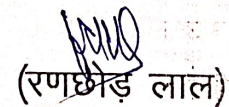 (रणछोड़ लाल)